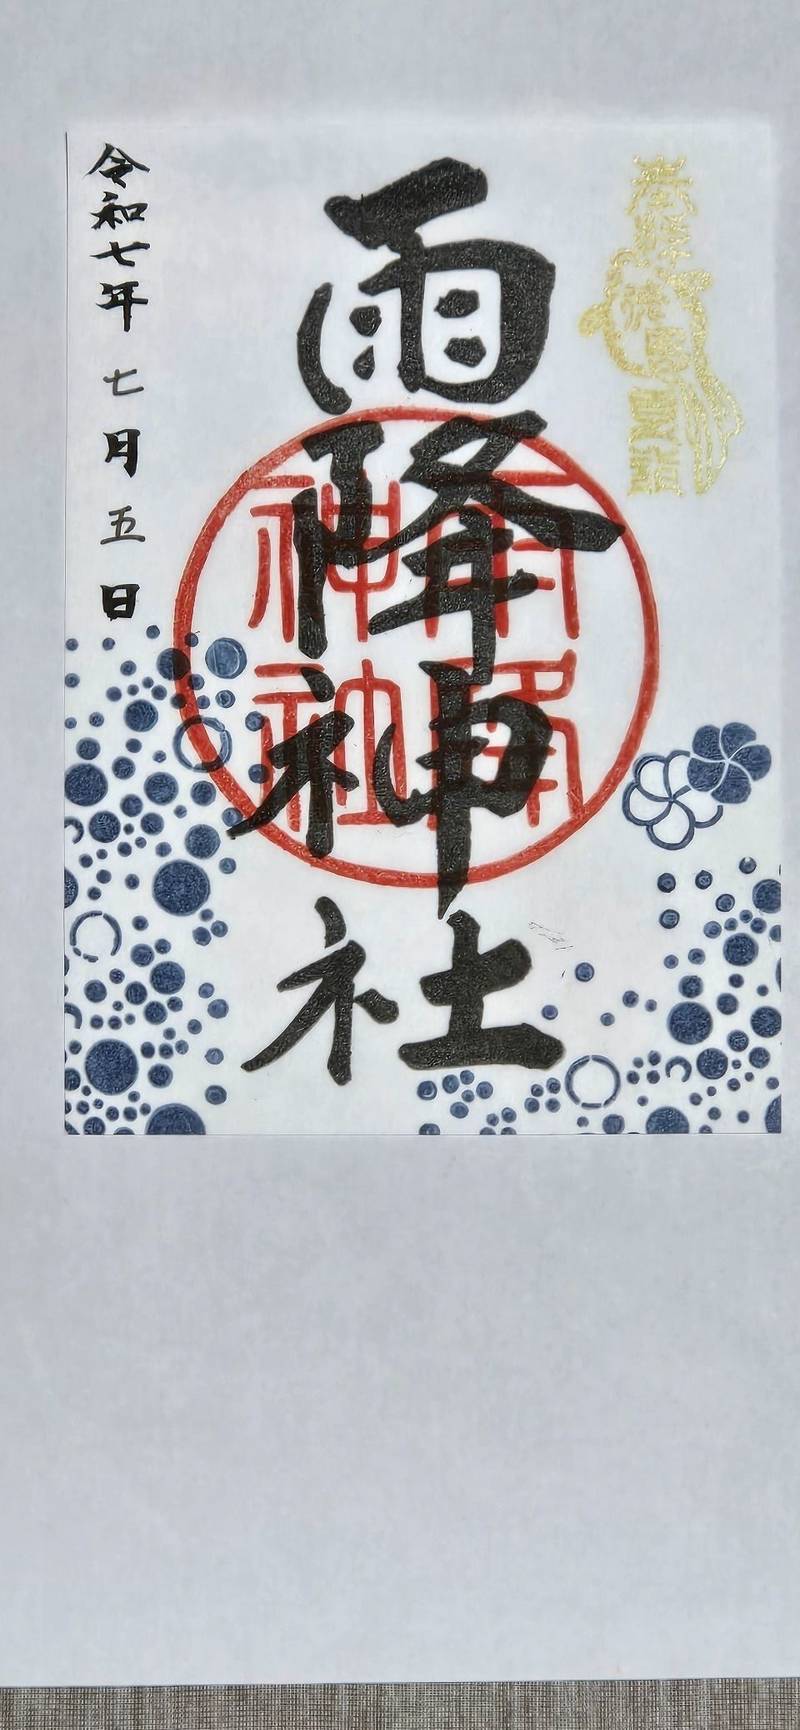 雨降神社
雨降
神社
令和七年 七月五日